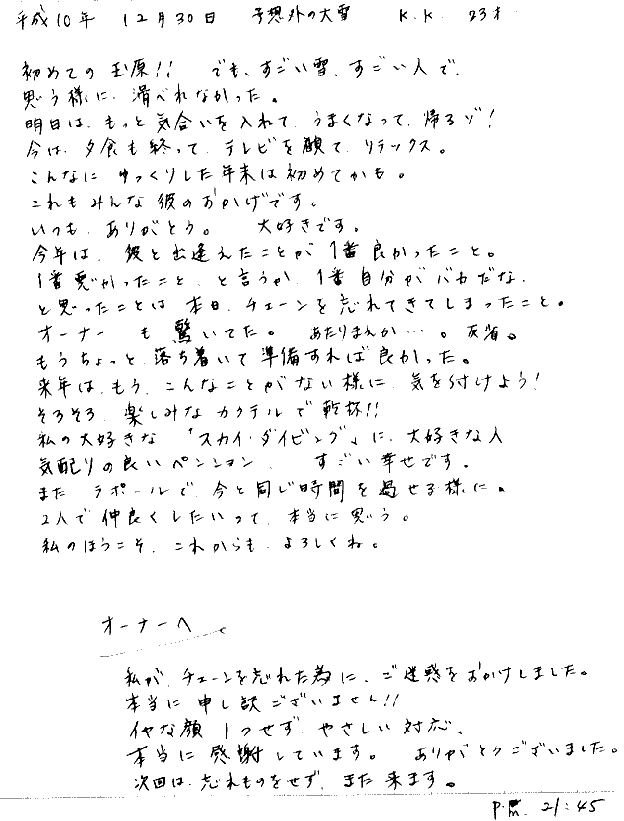 平成10年 12月30日 予想外の大雪 K.K. 23才
初めての玉原!! でも、すごい雪、すごい人で、
思う様に、滑べれなかった。
明日は、もっと気合いを入れて、うまくなって、帰るゾ!
今は、夕食も終って、テレビを観て、リラックス。
こんなに ゆっくりした年末は初めてかも。
これもみんな彼のおかげです。
いつも、ありがとう。 大好きです。
今年は、彼と出逢えたことが1番良かったこと。
1番悪かったこと、と言うか、1番自分がバカだな、
と思ったことは 本日、チェーンを忘れてきてしまったこと。
オーナー も 驚いてた。 あたりまえか…。反省。
もうちょっと、落ち着いて準備すれば良かった。
来年は、もう、こんなことがない様に、気を付けよう!
そろそろ、楽しみなカクテルで乾杯!!
私の大好きな 「スカイ・ダイビング」に、大好きな人
気配りの良いペンション、 すごい幸せです。
また ラポールで、今と同じ時間を過せる様に。
2人で仲良くしたいって、本当に思う。
私のほうこそ、これからも、よろしくね。
オーナーへ
私が、チェーンを忘れた為に、ご迷惑をおかけしました。
本当に 申し訳ございません!!
イヤな顔 1つせず、やさしい対応、
本当に 感謝しています。 ありがとうございました。
次回は、忘れものをせず、また来ます。
P.M. 21:45